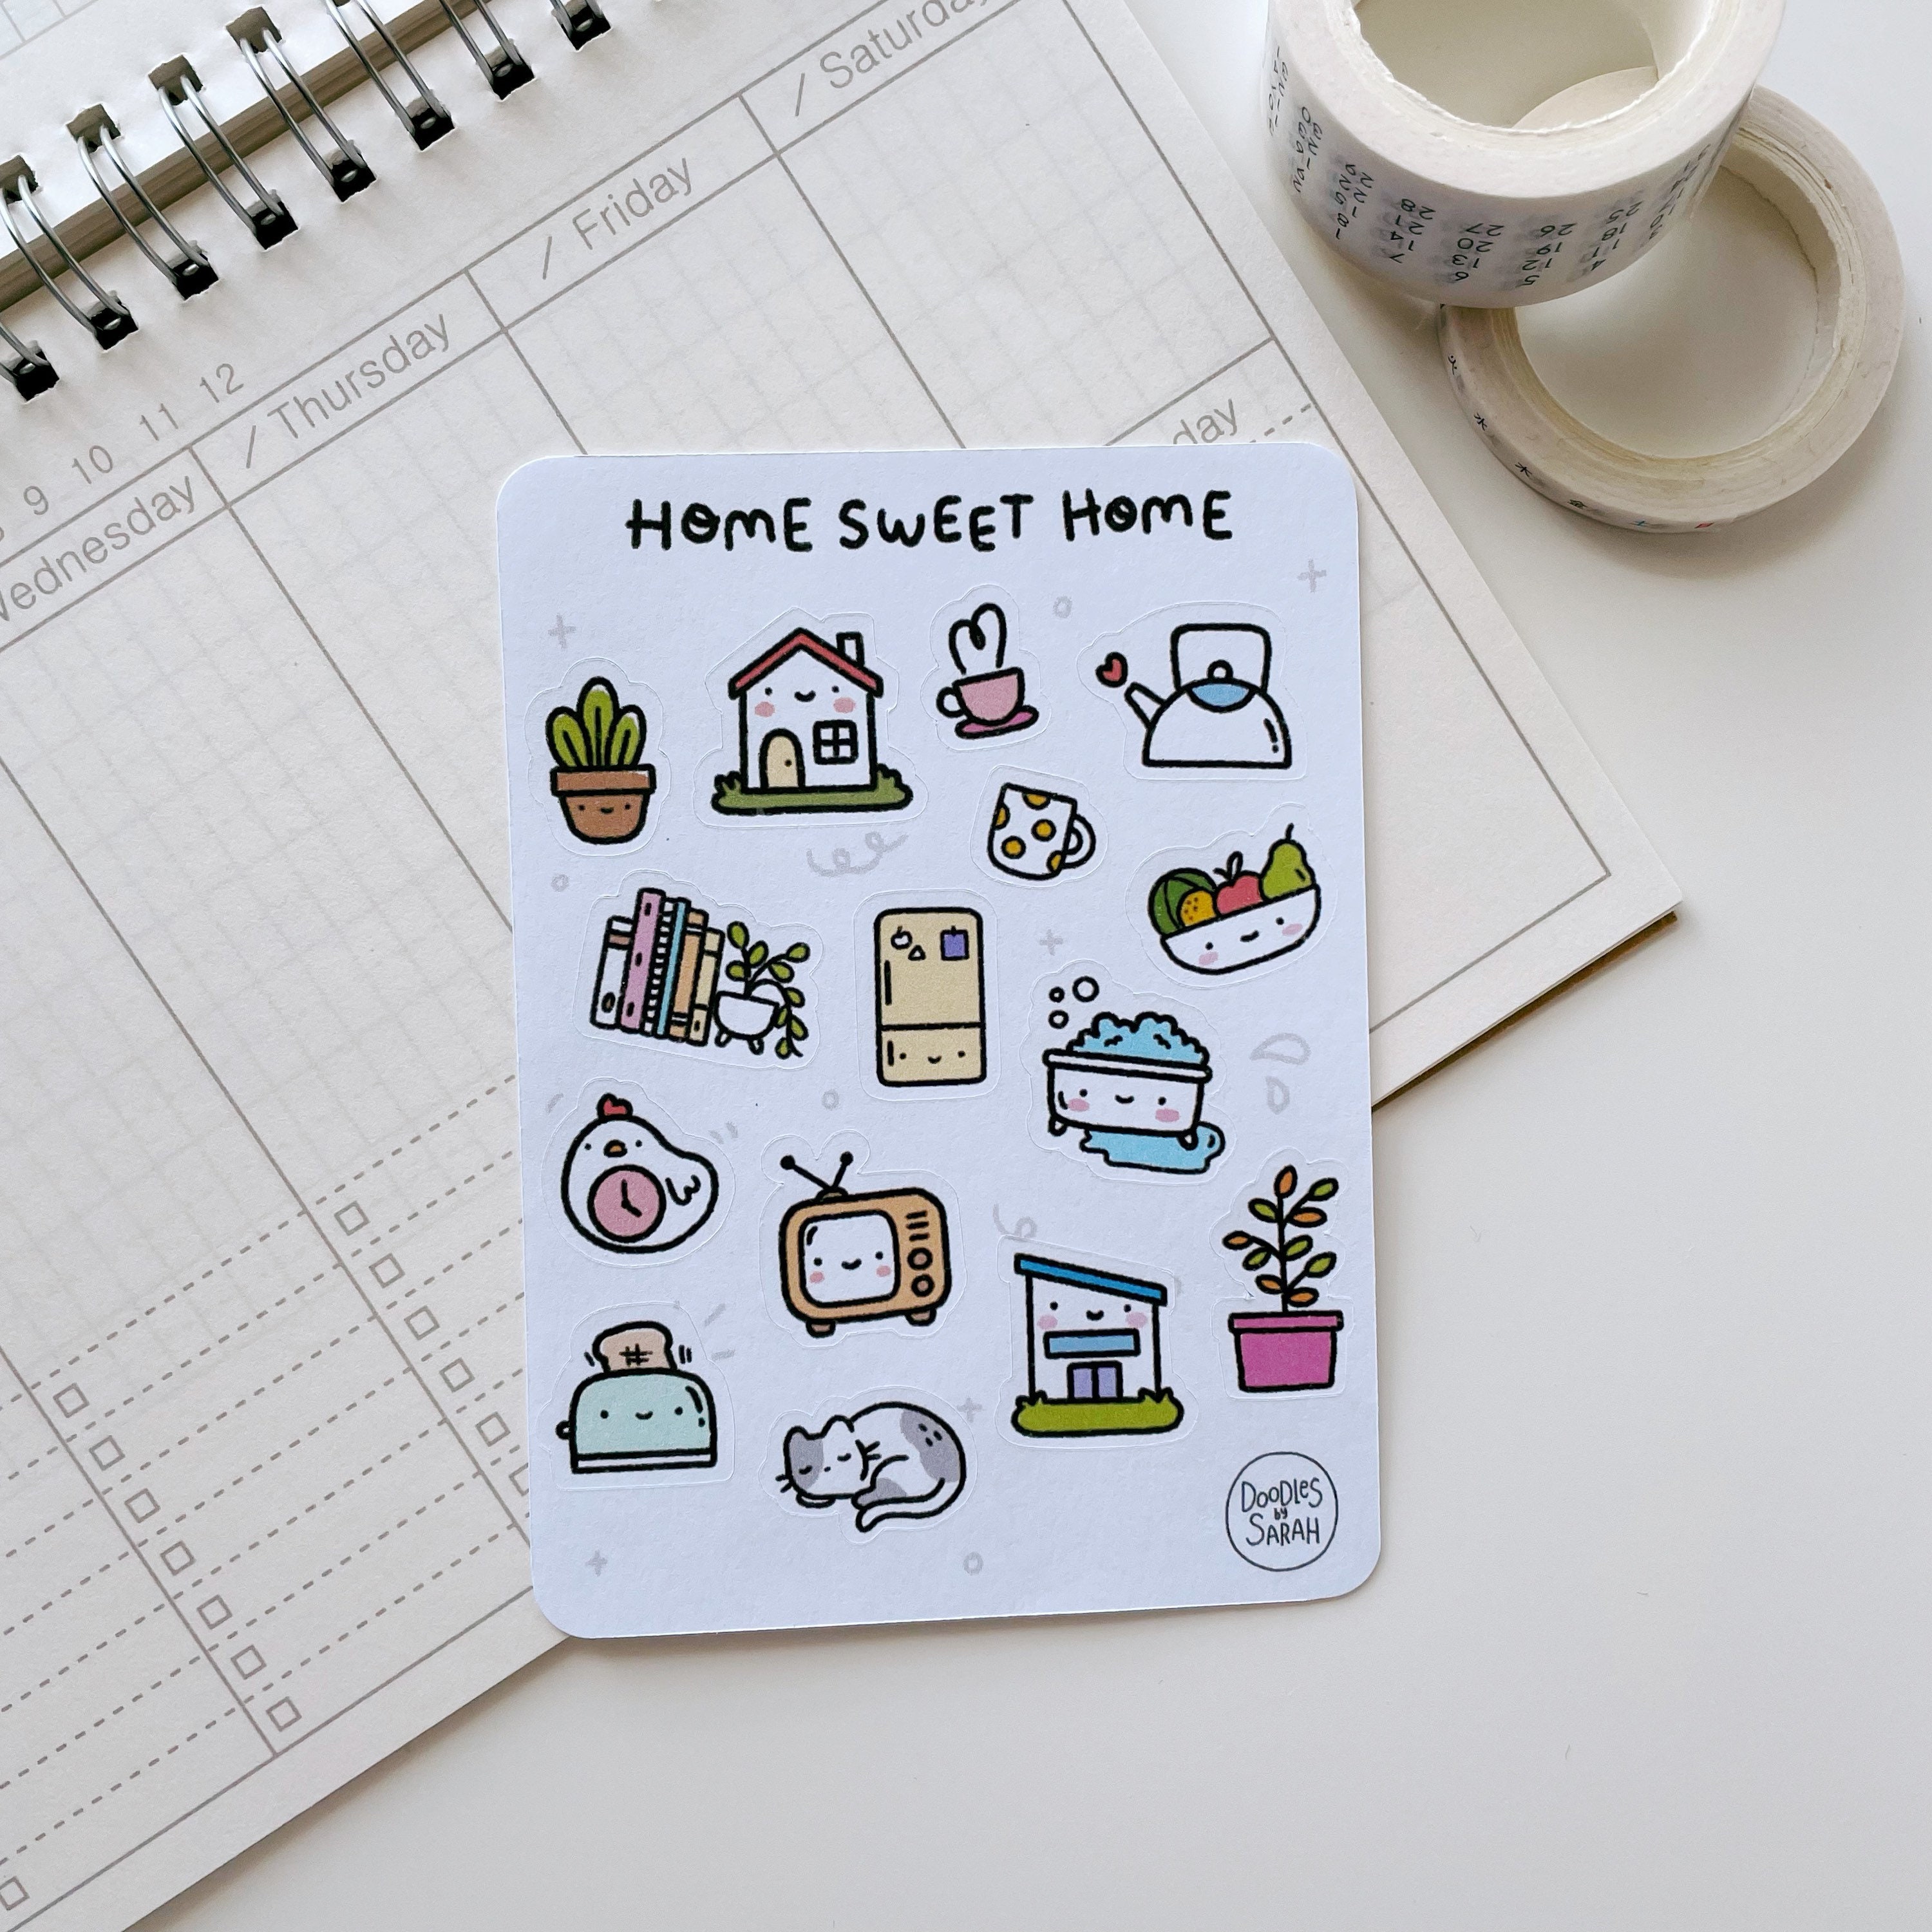 / Saturday
/ Friday
/ Thursday
9 10 11 12
Wednesday
day
HOME SWEET HOME
DOODLES
by
SARAH